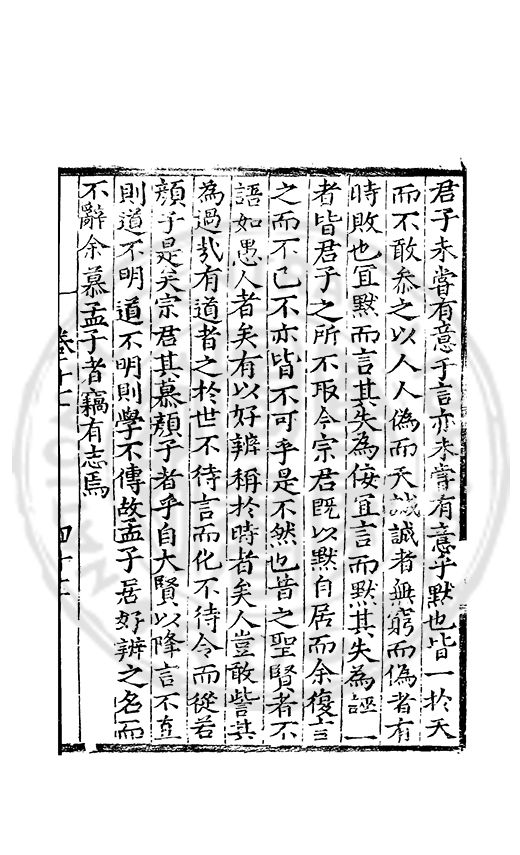 君子未嘗有意于言亦未嘗有意乎默也皆一於天
而不敢叅之以人人偽而天誠誠者無窮而偽者有
時敗也宜默而言其失為佞宜言而默其失為誣一
者皆君子之所不取今宗君既以默自居而余復言
之而不已不亦皆不可乎是不然也昔之聖賢者不
語如愚人者矣有以好辨稱於時者矣人豈敢訾其
為過㢤有道者之於世不待言而化不待令而從若
顏子是矣宗君其慕顏子者乎自大賢以降言不直
則道不明道不明則學不傳故孟子居好辨之名而
不辭余慕孟子者竊有志焉
卷十
四十二